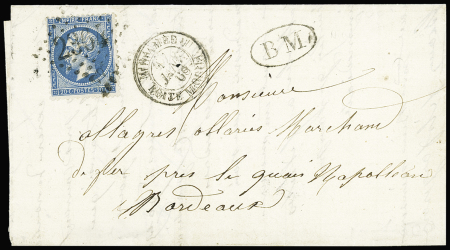 EMPIRE FRANC
20C POSTES 20C
B M
Monsieur
allagres allaries Marchand
de fer près le quais Napolléon
Bordeaux